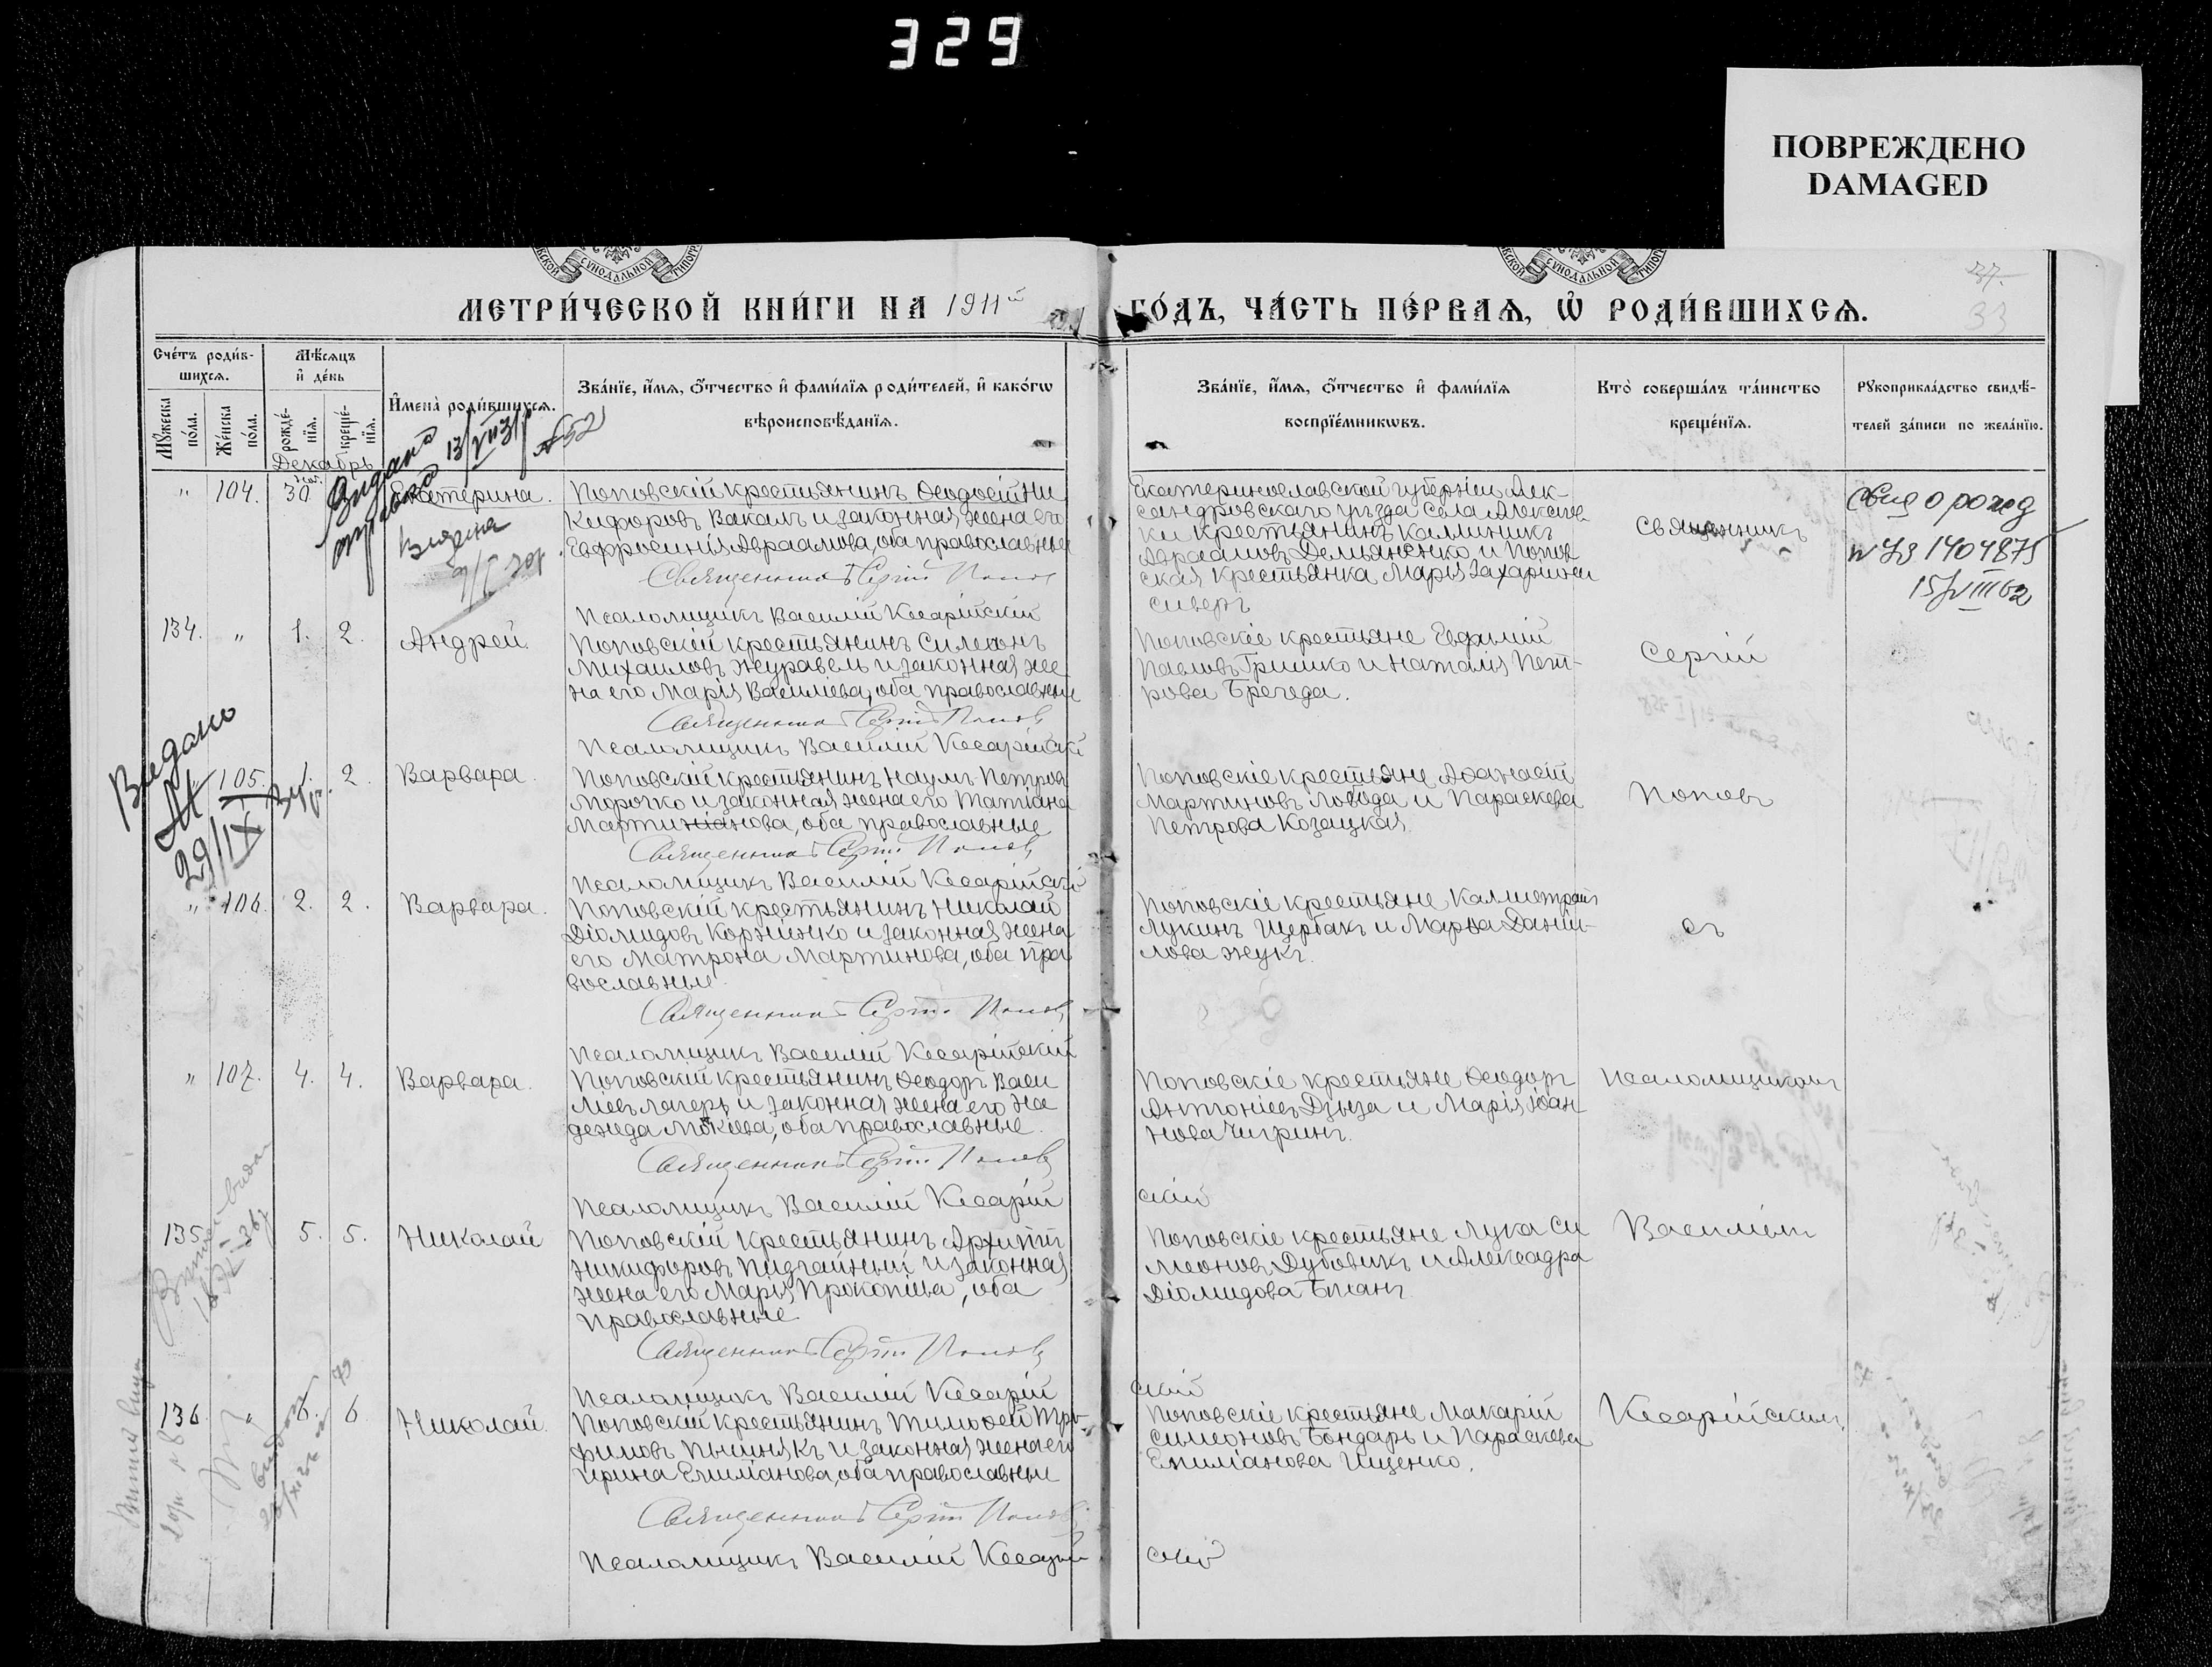 329
ПОВРЕЖДЕНО
DAMAGED
МЕТРИ́ЧЕСКОЙ КНИ́ГИ НА 1911й ГО́ДЪ, ЧА́СТЬ ПЕ́РВАѦ, Ѡ҆ РОДИ́ВШИХСѦ.
33
Сче́тъ роди́в-
шихсѧ.
Мꙋ́жеска по́ла.
Же́нска по́ла.
Мѣ́сѧцъ
и҆ де́нь
рожде́-
нїѧ.
креще́-
нїѧ.
И҆мена̀ роди́вшихсѧ.
Зва́нїе, и҆́мѧ, ѻ҆́тчество и҆ фами́лїѧ роди́телей, и҆ како́гѡ
вѣроисповѣ́данїѧ.
Зва́нїе, и҆́мѧ, ѻ҆́тчество и҆ фами́лїѧ
воспрїе́мникѡвъ.
Кто̀ соверша́лъ та́инство
креще́нїѧ.
Рꙋкоприкла́дство свидѣ́-
телей за́писи по жела́нїю.
Декабрь
" 104. 30. Екатерина.
Поповскій крестьянинъ Ѳеодосій Ни
кифоровъ Вакалъ и законная жена его
Евфросинія Авраамова, оба православные
Священникъ Сергій Попов
Псаломщикъ Василій Кесарійскій
Екатеринославской губерніи Алек-
сандровскаго уѣзда села Алексѣев
ки крестьянинъ Калиникъ
Авраамовъ Демьяненко и Попов
ская крестьянка Марія Захаріина
Священникъ
Свид о рожд
1404875
15/VIII 62
134. " 1. 2. Андрей
Поповскій крестьянинъ Симеонъ
Михаиловъ Журавель и законная же
на его Марія Василіева, оба православные
Священникъ Сергій Попов
Псаломщикъ Василій Кесарійскі
Поповскіе крестьяне Евфимій
Павловъ Гришко и Наталія Пет-
рова Брегеда.
Сергій
Выдано
29/IX
" 105. 1. 2. Варвара.
Поповскій крестьянинъ Наумъ Петров
Морочко и законная жена его Татіана
Мартинова, оба православные
Священникъ Сергій Попов
Псаломщикъ Василій Кесарійскі
Поповскіе крестьяне Аѳанасій
Мартиновъ Лобода и Параскева
Петрова Козацкая.
Поповъ
" 106. 2. 2. Варвара.
Поповскій крестьянинъ Николай
Діомидовъ Корниенко и законная жена
его Матрона Мартинова, оба пра
вославные
Священникъ Сергій Попов
Псаломщикъ Василій Кесарійскій
Поповскіе крестьяне Калистратъ
Лукинъ Щербакъ и Марѳа Даніи-
лова Жукъ.
съ
" 107. 4. 4. Варвара.
Поповскій крестьянинъ Ѳеодоръ Васи
ліевъ Лагеръ и законная жена его На
дежда Мокіева, оба православные.
Священникъ Сергій Попов
Псаломщикъ Василій Кесарій
скій
Поповскіе крестьяне Ѳеодоръ
Антоніевъ Дзыза и Марія Іоан-
нова Чигринъ.
Псаломщикомъ
135. 5. 5. Николай
Поповскій крестьянинъ Архиппъ
Никифоровъ Пидгайный и законная
жена его Марія Прокопіева, оба
православные
Священникъ Сергій Попов
Псаломщикъ Василій Кесарій
скій
Поповскіе крестьяне Лука Си
меоновъ Дубовикъ и Алексадра
Діомидова Біланъ.
Василіемъ
136. " 6. 6 Николай.
Поповскій крестьянинъ Тимоѳей Тро-
фимовъ Пышнякъ и законная жена его
Ирина Емиліанова, оба православные
Священникъ Сергій Попов
Псаломщикъ Василій Кесарій
скій
Поповскіе крестьяне Макарій
Симеоновъ Бондарь и Параскева
Емиліанова Ищенко.
Кесарійскимъ